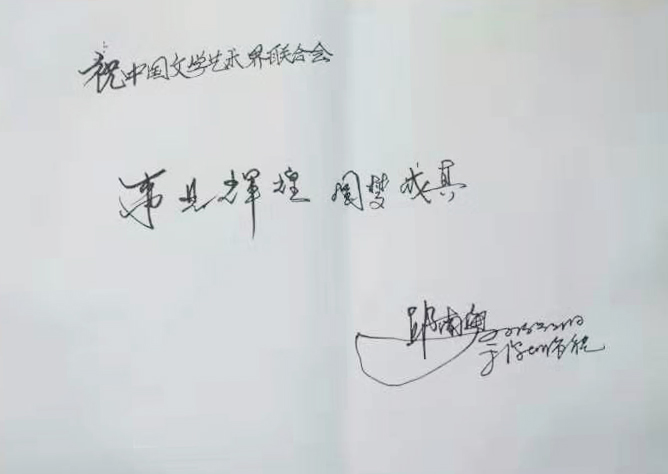 祝中国文学艺术界联合会
事业辉煌 圆梦成真